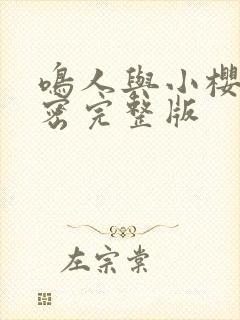 鳴人與小櫻
密完整版
左宗棠